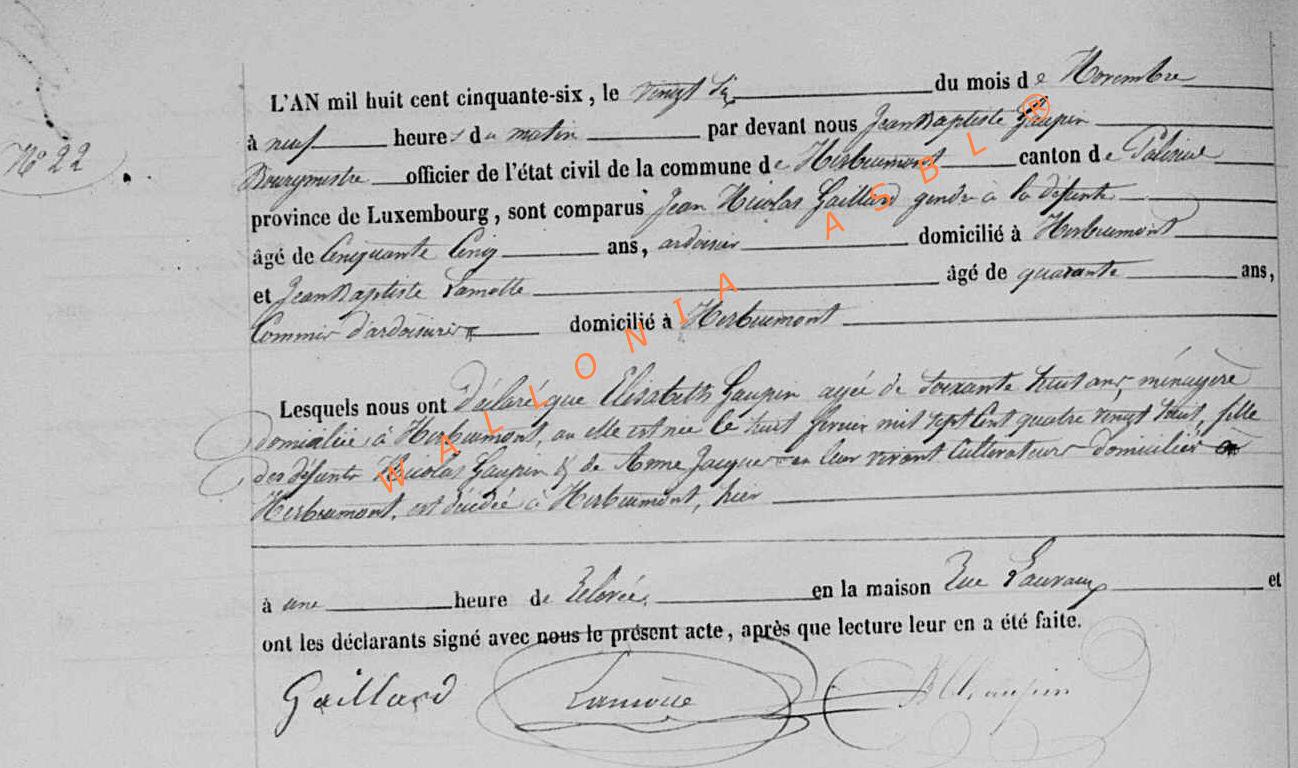 N° 22
L'AN mil huit cent cinquante-six, le vingt six du mois de Novembre
à neuf heures du matin par devant nous Jean Baptiste Gaupin
Bourgmestre officier de l'état civil de la commune de Herbeumont canton de Paliseul
province de Luxembourg, sont comparus Jean Nicolas Gaillard gendre à la défunte
âgé de Cinquante Cinq ans, ardoisier domicilié à Herbeumont
et Jean Baptiste Lamotte âgé de quarante ans,
Commis d'ardoisière domicilié à Herbeumont
Lesquels nous ont déclaré que Elisabeth Gaupin agée de soixante huit ans, ménagère
domiciliée à Herbeumont, où elle est née le huit février mil sept cent quatre vingt huit, fille
des défunts Nicolas Gaupin & de Anne Jacques en leur vivant Cultivateurs domiciliés à
Herbeumont, est décédée à Herbeumont, hier
à une heure de relevée, en la maison Rue Lauvaux et
ont les déclarants signé avec nous le présent acte, après que lecture leur en a été faite.
Gaillard Lamotte
WALLONIA ASBL ®